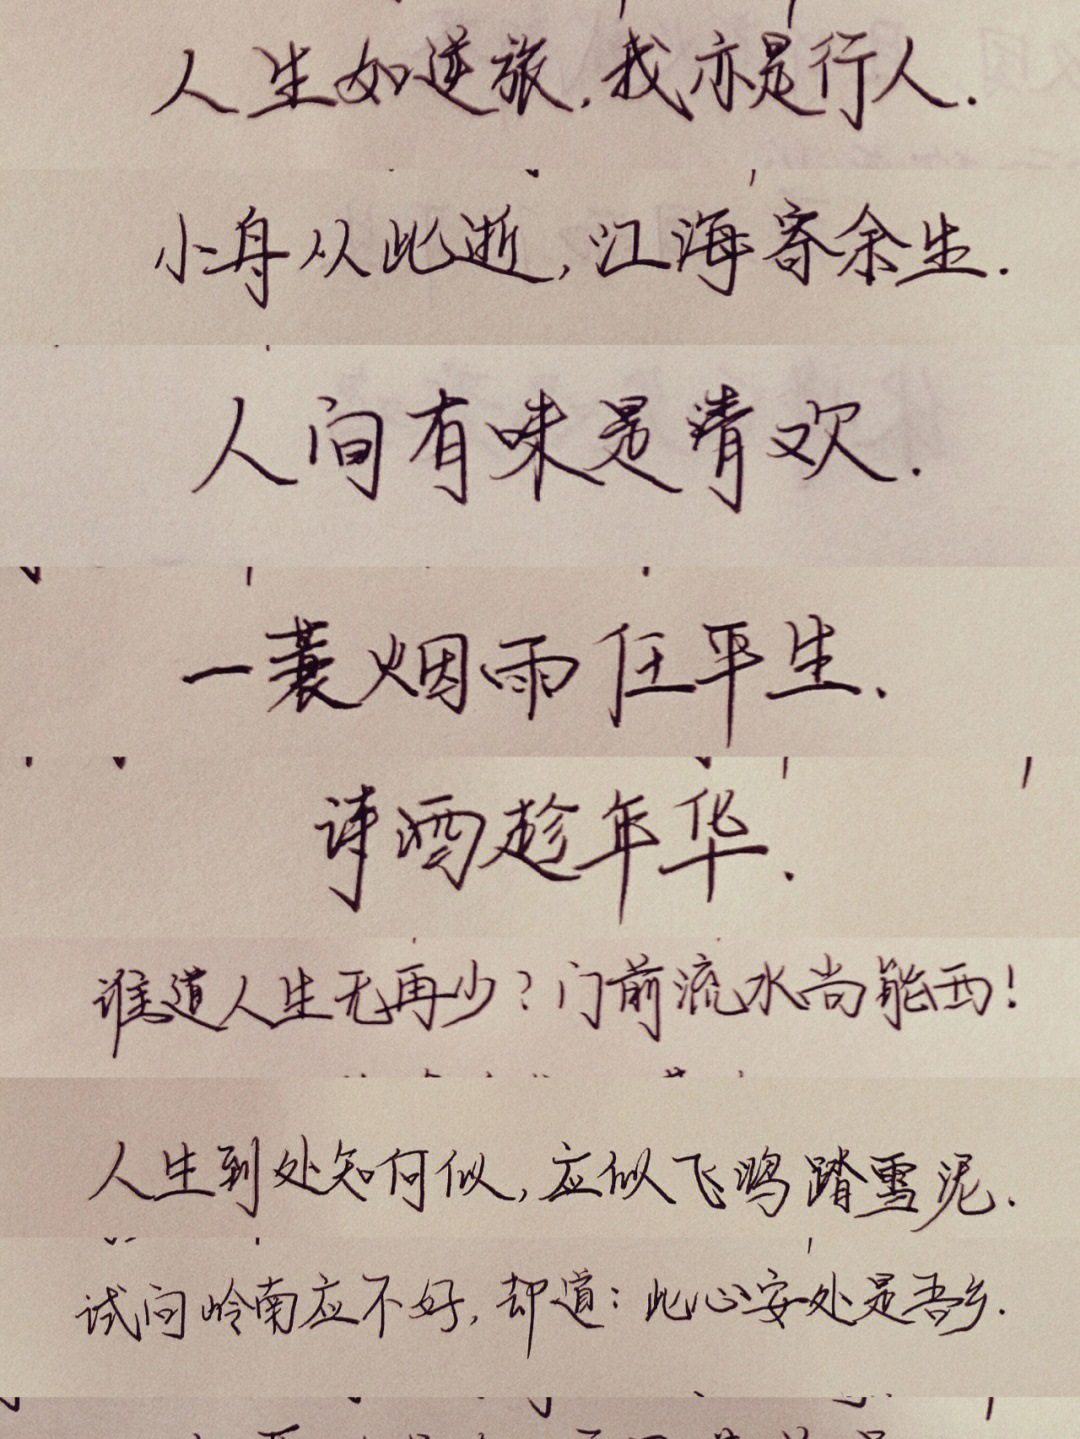 人生如逆旅,我亦是行人.
小舟从此逝,江海寄余生.
人间有味是清欢.
一蓑烟雨任平生.
诗酒趁年华.
谁道人生无再少?门前流水尚能西!
人生到处知何似,应似飞鸿踏雪泥.
试问岭南应不好,却道:此心安处是吾乡.